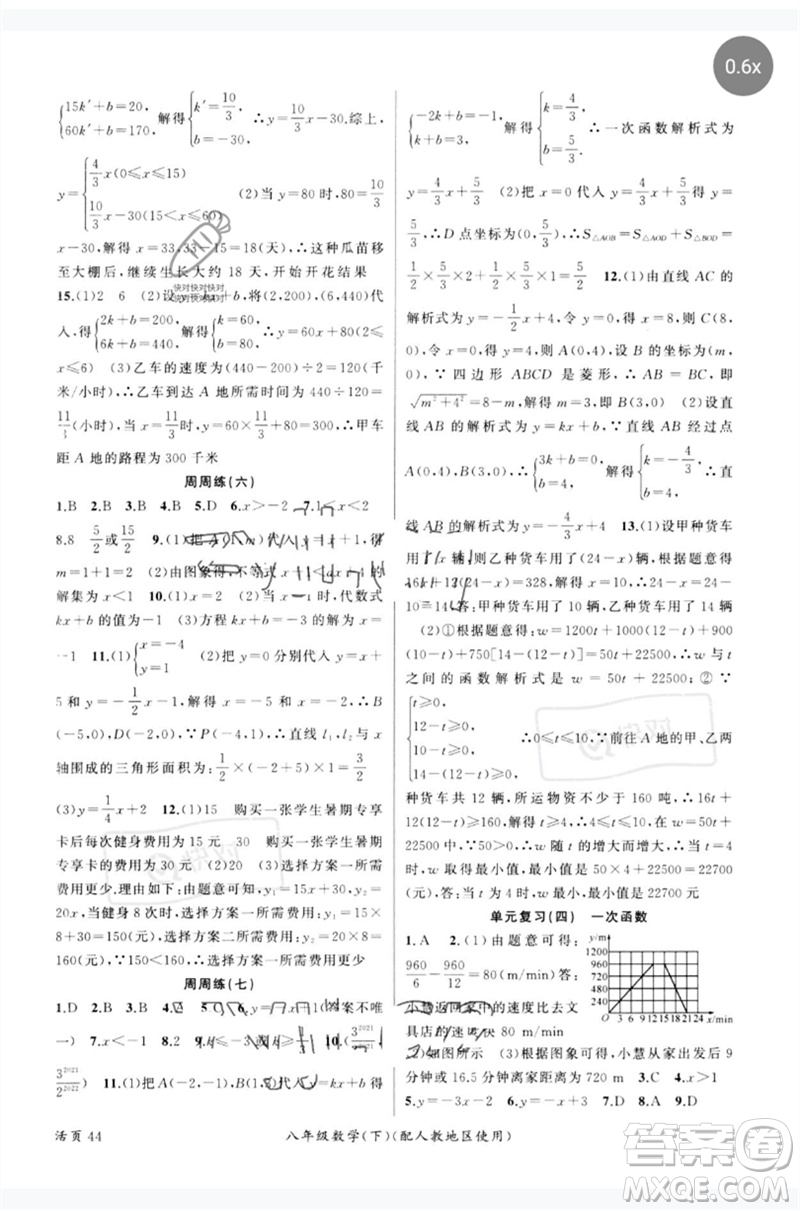 0.6x
{15k′+b=20, 60k′+b=170, 解得 {k′=10/3, b=-30. ∴y=10/3 x-30.综上,
y={4/3 x(0≤x≤15) 10/3 x-30(15<x≤60) (2)当 y=80 时,80=10/3
x-30,解得 x=33,33-15=18(天),∴这种瓜苗移
至大棚后,继续生长大约 18 天,开始开花结果
15.(1)2 6 (2)设 y=kx+b,将(2,200),(6,440)代
入,得{2k+b=200, 6k+b=440, 解得{k=60, b=80, ∴y=60x+80(2≤
x≤6) (3)乙车的速度为(440-200)÷2=120(千
米/小时),∴乙车到达 A 地所需时间为 440÷120=
11/3(小时),当 x=11/3 时,y=60×11/3+80=300,∴甲车
距 A 地的路程为 300 千米
周周练(六)
1.B 2.B 3.B 4.B 5.D 6.x>-2 7.1≤x<2
8.8 5/2或15/2 9.(1)把 代入 y=x+1,得
m=1+1=2 (2)由图象得,不等式 x+1
解集为 x<1 10.(1)2 (2)当 x=1 时,代数式
kx+b 的值为-1 (3)方程 kx+b=-3 的解为 x=
-1 11.(1){x=-4 y=1 (2)把 y=0 分别代入 y=x+
5 和 y=-1/2 x-1,解得 x=-5 和 x=-2,∴B
(-5,0),D(-2,0),∴BD=3,∴直线 l₁、l₂ 与 x
轴围成的三角形面积=1/2×(-2+5)×1=3/2
(3)y=1/4 x+2 12.(1)15 购买一张学生暑期专享
卡后每次健身费用为 15 元 30 购买一张学生暑期
专享卡的费用为 30 元 (2)20 (3)选择方案一所
需费用更少.理由如下:由题意可知,y₁=15x+30,y₂=
20x,当健身 8 次时,选择方案一所需费用:y₁=15×
8+30=150(元),选择方案二所需费用:y₂=20×8=
160(元),∵150<160,∴选择方案一所需费用更少
周周练(七)
1.D 2.B 3.C 6.y=x+1(答案不唯
一) 7.x<-1 8.2
3²⁰²¹/2²⁰²² 11.(1)把 A(-2,-1),B(1,3)代入 y=kx+b 得
{-2k+b=-1, k+b=3, 解得{k=4/3, b=5/3. ∴一次函数解析式为
y=4/3 x+5/3 (2)把 x=0 代入 y=4/3 x+5/3 得 y=
5/3,∴D 点坐标为(0,5/3),∴S△AOB=S△AOD+S△BOD=
1/2×5/3×2+1/2×5/3×1=5/2 12.(1)由直线 AC 的
解析式为 y=-1/2 x+4,令 y=0,得 x=8,则 C(8,
0),令 x=0,得 y=4,则 A(0,4),设 B(m,0),则
BC=8-m,∵四边形 ABCD 是菱形,∴AB=BC,即
√m²+4²=8-m,解得 m=3,即 B(3,0) (2)设直
线 AB 的解析式为 y=kx+b,∵直线 AB 经过点
A(0,4),B(3,0),∴{3k+b=0, b=4, 解得{k=-4/3, b=4, ∴直
线 AB 的解析式为 y=-4/3 x+4 13.(1)设甲种货车
用了 x 辆,则乙种货车用了(24-x)辆,根据题意得
16x+12(24-x)=328,解得 x=10,∴24-x=24-
10=14.答:甲种货车用了 10 辆,乙种货车用了 14 辆
(2)①根据题意得:w=1200t+1000(12-t)+900
(10-t)+750[14-(12-t)]=50t+22500,∴w 与 t
之间的函数解析式是 w=50t+22500;②∵
{t≥0, 12-t≥0, 10-t≥0, t≥0, ∴0≤t≤10,∵前往 A 地的甲、乙两
种货车共 12 辆,所运物资不少于 160 吨,∴16t+
12(12-t)≥160,解得 t≥4,∴4≤t≤10,在 w=50t+
22500 中,∵50>0,∴w 随 t 的增大而增大,∴当 t=4
时,w 取最小值,最小值是 50×4+22500=22700
(元),答:当 t 为 4 时,w 最小,最小值是 22700 元
单元复习(四) 一次函数
1.A 2.(1)由题意可得:
960/6-960/12=80(m/min)答:
小慧返回家中的速度比去文
具店的速度快 80 m/min
y/m
1200
960
720
480
240
0 3 6 9 12 15 18 21 24 x/min
(2)如图所示 (3)根据图象可得,小慧从家出发后 9
分钟或 16.5 分钟离家距离为 720 m 3.C 4.x>1
5.< 6.y=-2x 7.y=2x-2 8.A 9.D
快对
活页 44
八年级数学(下)(配人教地区使用)
答案圈
MXQE.COM